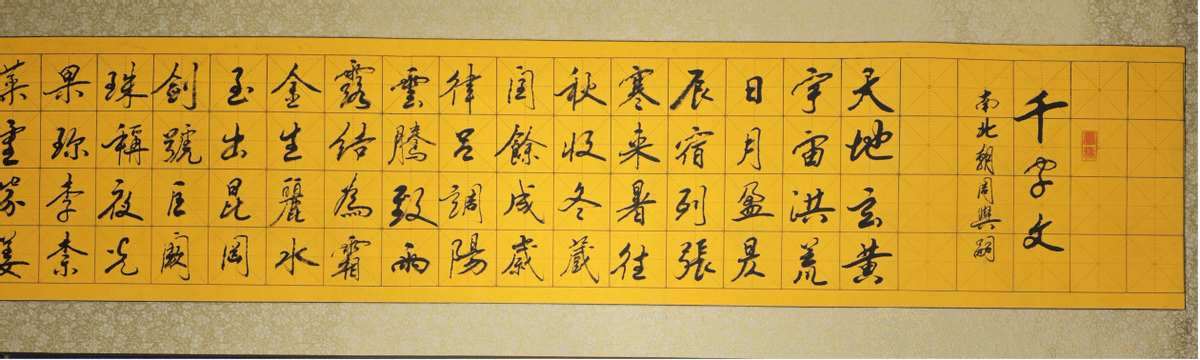 千字文
南北朝周興嗣
天地玄黄
宇宙洪荒
日月盈昃
辰宿列張
寒来暑往
秋收冬藏
閏餘成歲
律呂調陽
雲騰致雨
露結為霜
金生麗水
玉出昆岡
劍號巨闕
珠稱夜光
果珍李柰
菜重芥姜